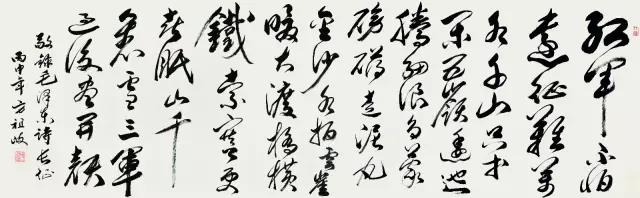 红军不怕
遠征難萬
水千山只等
闲五嶺逶迤
腾细浪乌蒙
磅礴走泥丸
金沙水拍雲崖
暖大渡橋横
鐵索寒更
喜岷山千
里雪三軍
过後尽开颜
敬錄毛泽东诗长征
丙申年方祖岐